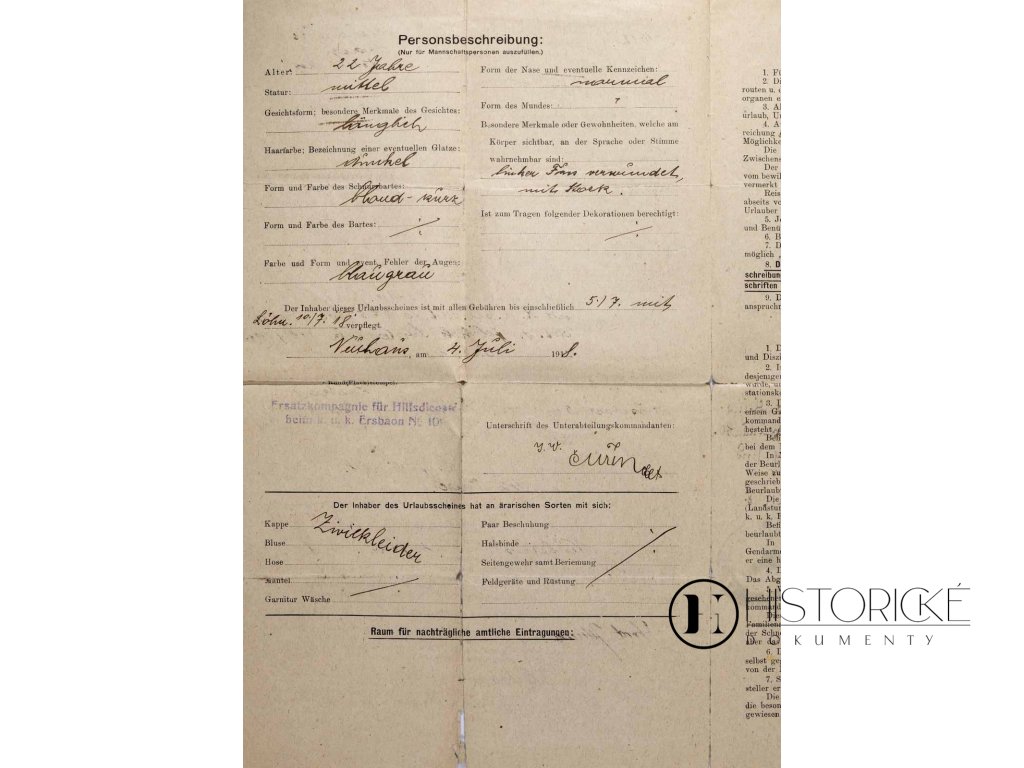 Personsbeschreibung:
(Nur für Mannschaftspersonen auszufüllen.)
Alter: 22 Jahre
Statur: mittel
Gesichtsform; besondere Merkmale des Gesichtes:
länglich
Haarfarbe; Bezeichnung einer eventuellen Glatze:
dunkel
Form und Farbe des Schnurrbartes:
blond - kurz
Form und Farbe des Bartes: ./.
Farbe und Form und event. Fehler der Augen:
blaugrau
Form der Nase und eventuelle Kennzeichen:
normal
Form des Mundes: "
Besondere Merkmale oder Gewohnheiten, welche am
Körper sichtbar, an der Sprache oder Stimme
wahrnehmbar sind:
linker Fuss verwundet,
mit Stock.
Ist zum Tragen folgender Dekorationen berechtigt:
./.
Der Inhaber dieses Urlaubsscheines ist mit allen Gebühren bis einschließlich 5/7. mit
Löhn. 10/7. 18 verpflegt.
Neuhaus, am 4. Juli 1918.
Ersatzkompagnie für Hilfsdienste
beim k. u. k. Ersbaon № 10
Unterschrift des Unterabteilungskommandanten:
Der Inhaber des Urlaubsscheines hat an ärarischen Sorten mit sich:
Kappe Zivilkleider
Bluse
Hose
Mantel
Garnitur Wäsche
Paar Beschuhung
Halsbinde
Seitengewehr samt Beriemung
Feldgeräte und Rüstung
Raum für nachträgliche amtliche Eintragungen:
2. Di
routen u. d
organen e
3. Al
urlaub, Un
4. A
reichung
Möglichkei
Die
Zwischens
Der
vom bewil
vermerkt
Reis
abseits vo
Urlauber
5. J
und Benü
6. B
7. D
möglich
8. D
schreibun
schriften
9. D
anspruch
1. D
und Diszi
2. I
desjenigen
wurde, un
stationsko
3. I
einem Ga
kommand
besteht, d
Beli
bei dem
In
der Beurl
Weise zu
geschrieb
Beurlaub
Die
(Landstu
k. u. k. I
Befi
beurlaubt
In
Gendarme
er eine
4. D
Das Abg
HISTORICKÉ
DOKUMENTY
6. D
selbst ge
von der
7. S
steller er
Die
die beson
gewiesen